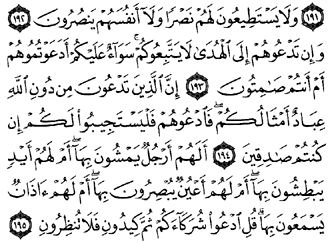 ﴿١٩١﴾ وَلَا يَسْتَطِيعُونَ لَهُمْ نَصْرًا وَلَآ أَنفُسَهُمْ يَنصُرُونَ ﴿١٩٢﴾
وَإِن تَدْعُوهُمْ إِلَى ٱلْهُدَىٰ لَا يَتَّبِعُوكُمْ ۚ سَوَآءٌ عَلَيْكُمْ أَدَعَوْتُمُوهُمْ
أَمْ أَنتُمْ صَٰمِتُونَ ﴿١٩٣﴾ إِنَّ ٱلَّذِينَ تَدْعُونَ مِن دُونِ ٱللَّهِ
عِبَادٌ أَمْثَالُكُمْ ۖ فَٱدْعُوهُمْ فَلْيَسْتَجِيبُوا۟ لَكُمْ إِن
كُنتُمْ صَٰدِقِينَ ﴿١٩٤﴾ أَلَهُمْ أَرْجُلٌ يَمْشُونَ بِهَآ ۖ أَمْ لَهُمْ أَيْدٍ
يَبْطِشُونَ بِهَآ ۖ أَمْ لَهُمْ أَعْيُنٌ يُبْصِرُونَ بِهَآ ۖ أَمْ لَهُمْ ءَاذَانٌ
يَسْمَعُونَ بِهَا ۗ قُلِ ٱدْعُوا۟ شُرَكَآءَكُمْ ثُمَّ كِيدُونِ فَلَا تُنظِرُونِ ﴿١٩٥﴾